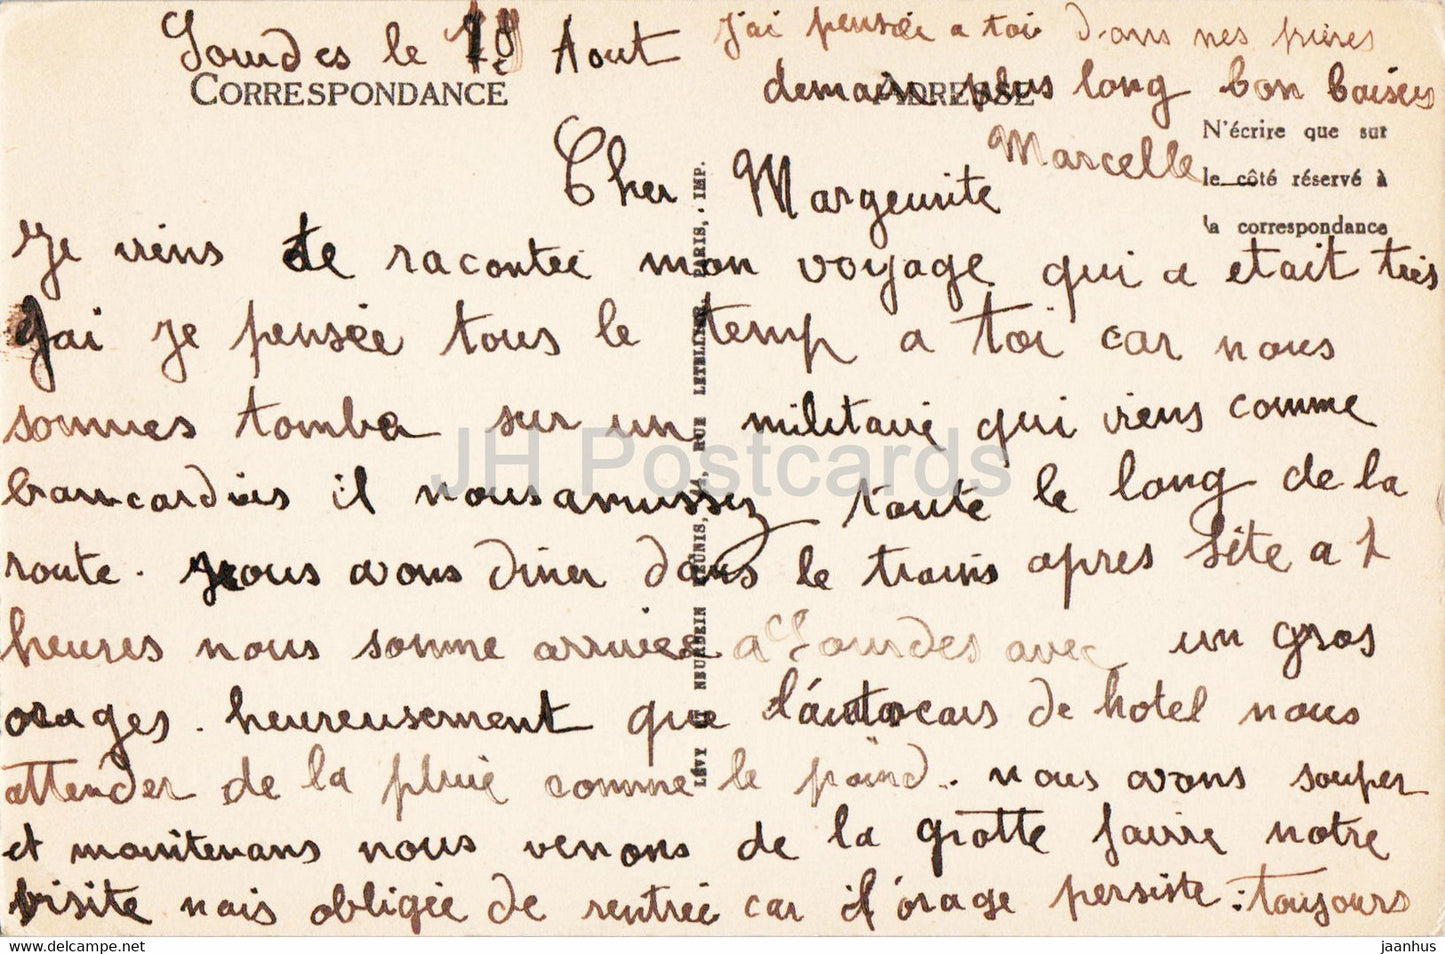 Lourdes le 18 Aout
CORRESPONDANCE
Cher Margeurite
Je viens te racontée mon voyage qui a etait tres
gai je pensée tous le temp a toi car nous
sommes tomber sur un militaire qui viens comme
brancardiers il nous amussez toute le long de la
route. Nous avons diner dans le trains apres Séte a 7
heures nous somme arrivée a Lourdes avec un gros
orages. heureusement que l'áutocars de hotel nous
attender de la pluie comme le poind. nous avons souper
et mainitenans nous venons de la grotte faire notre
visite mais obligée de rentrée car il órage persiste: toujours
J'ai pensée a toi dans mes prieres
ADRESSE
demain plus long bon baisers
Marcelle
N'écrire que sur
le côté réservé à
la correspondance
LÉVY ET NEURDEIN RÉUNIS, 44, RUE LETELLIER, PARIS, . IMP.
JH Postcards
www.hippostcard.com
jaanhus